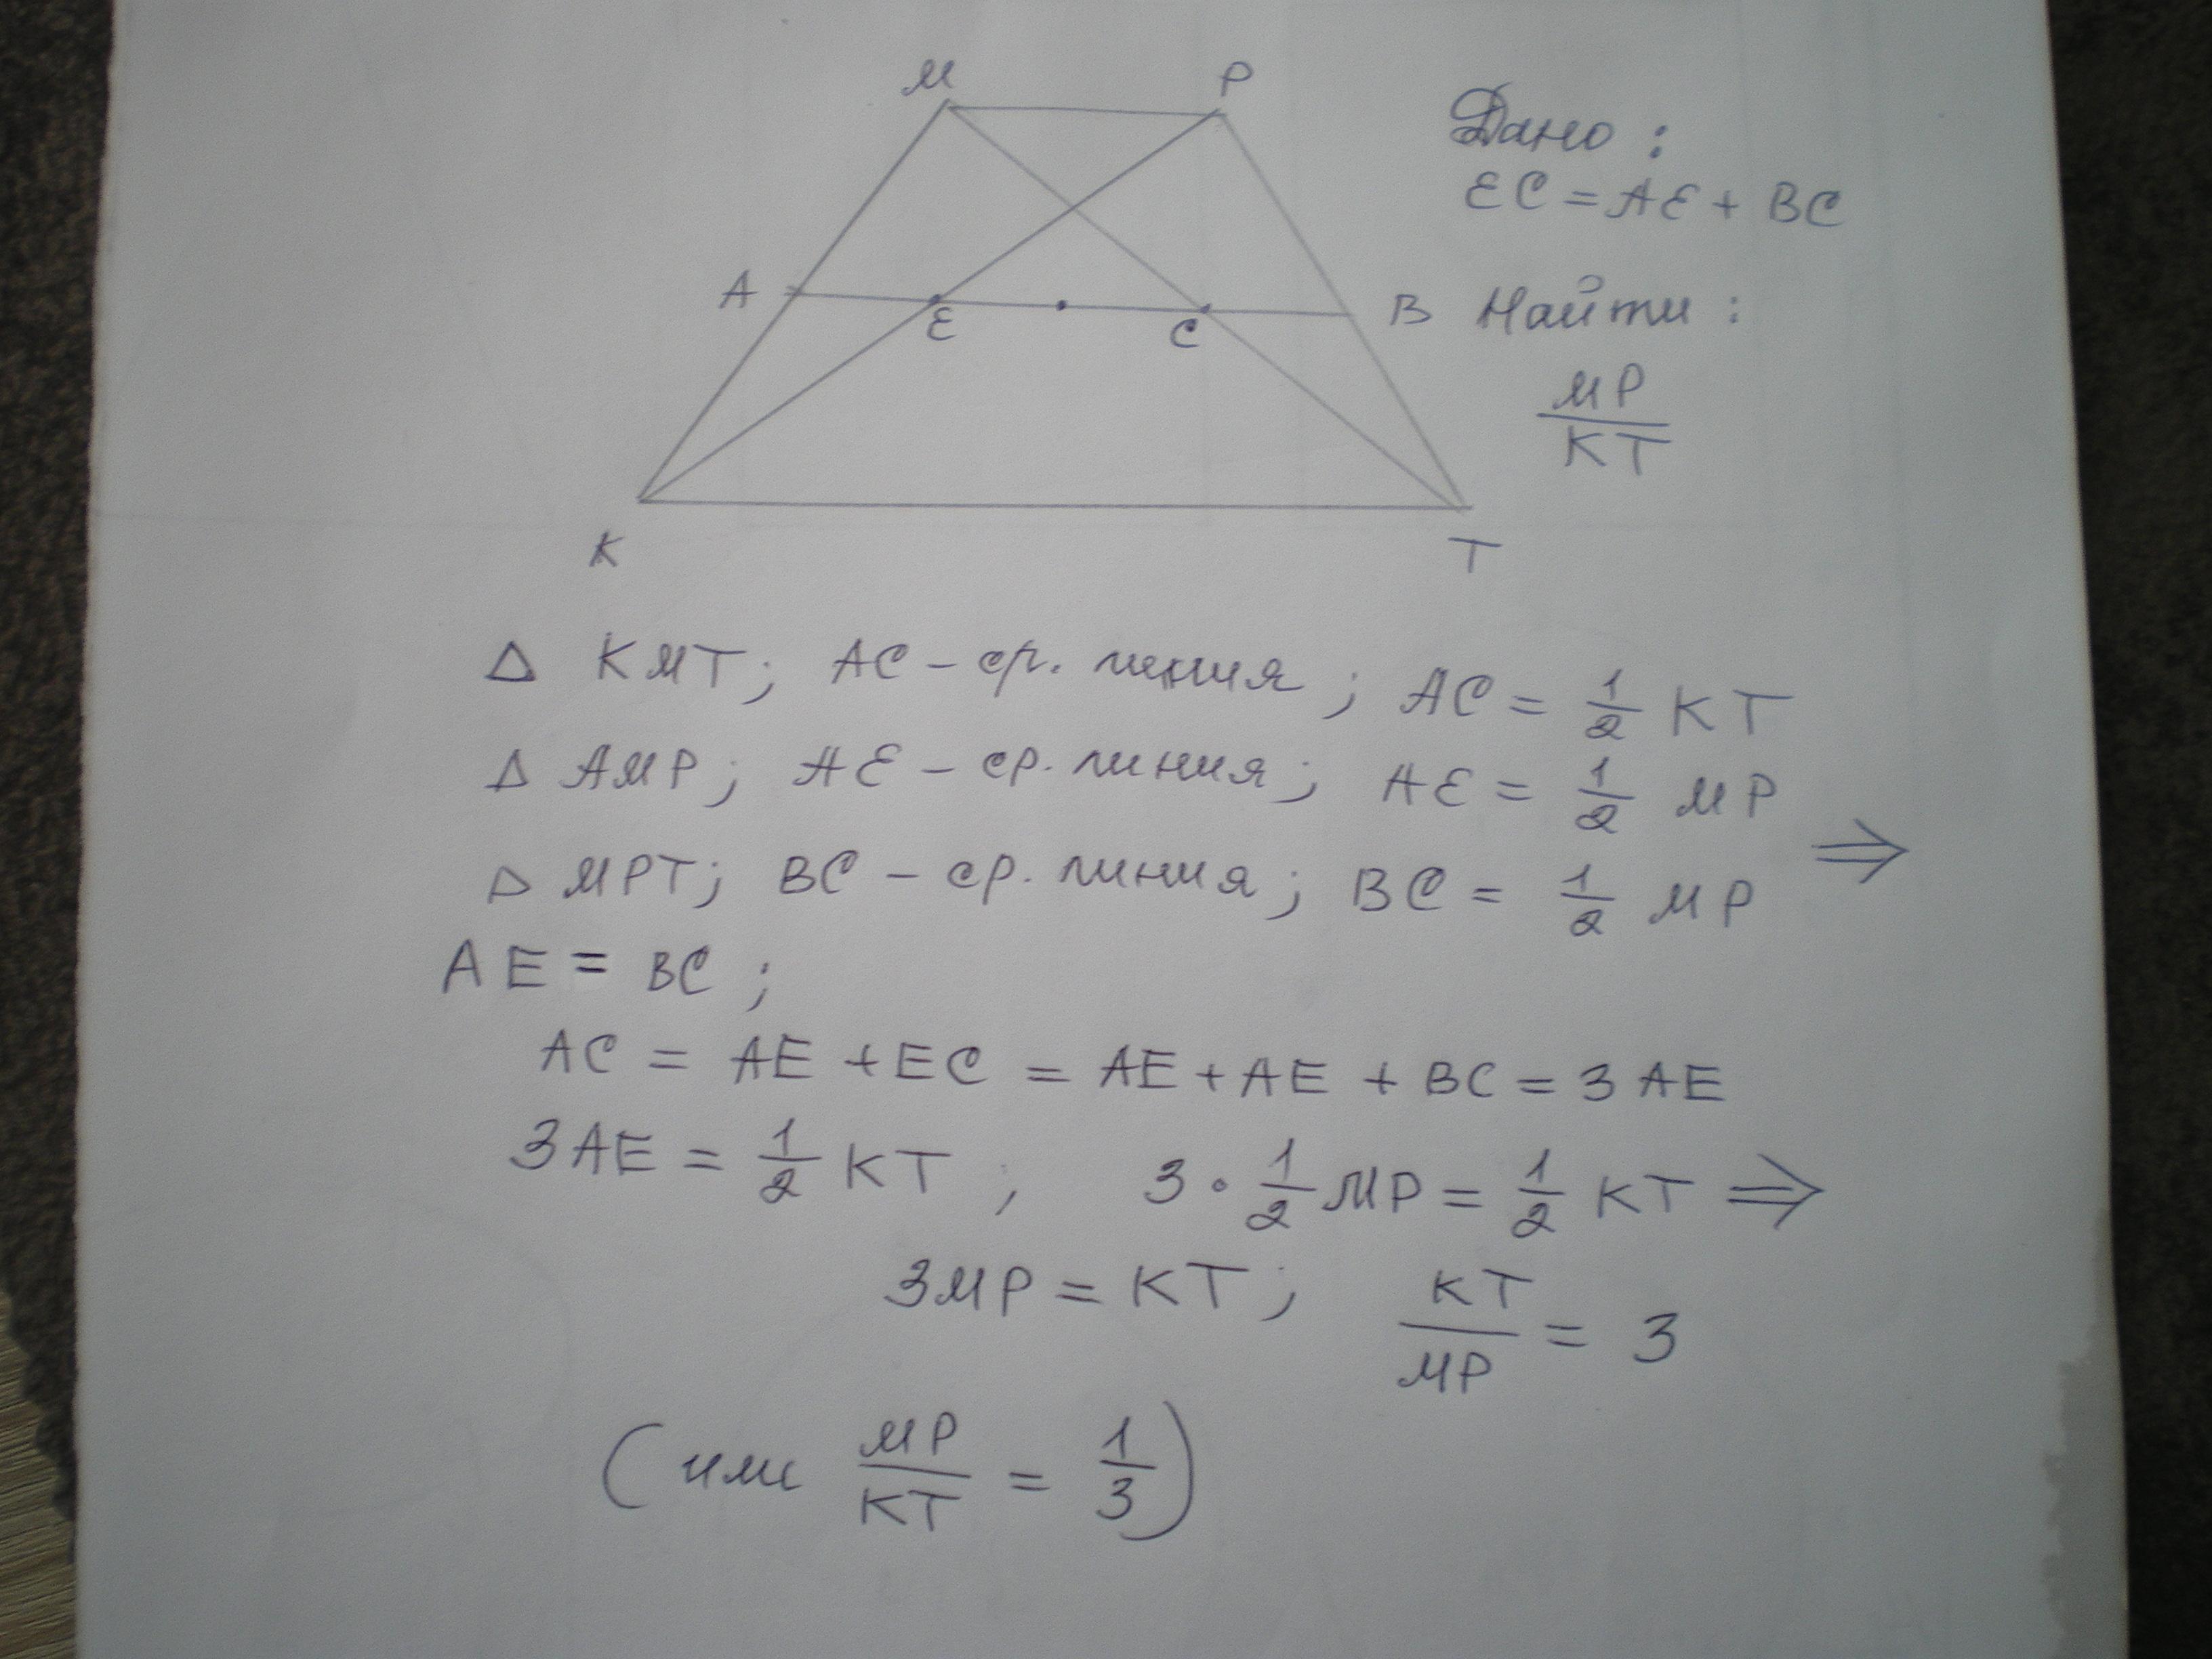 M P
Дано :
EC = AE + BC
A E C B
Найти :
MP/KT
K T
Δ KMT; AC – ср. линия; AC = 1/2 KT
Δ AMP; AE – ср. линия; AE = 1/2 MP
Δ MPT; BC – ср. линия; BC = 1/2 MP ⇒
AE = BC ;
AC = AE + EC = AE + AE + BC = 3 AE
3AE = 1/2 KT , 3 · 1/2 MP = 1/2 KT ⇒
3MP = KT ; KT/MP = 3
(или MP/KT = 1/3)